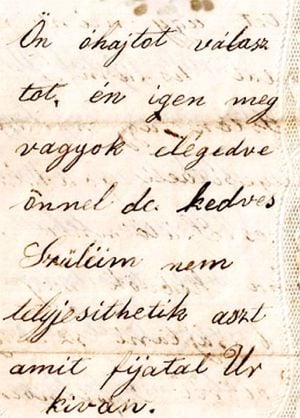 Ön óhajtot válasz
tot, én igen meg
vagyok elégedve
önnel de. kedves
Szüleim nem
teljesithetik aszt
amit fijatal Ur
kiván.